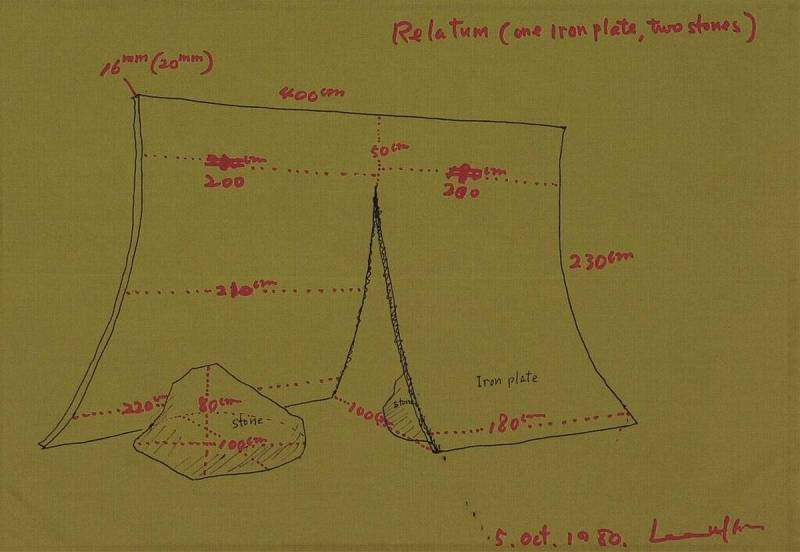 Relatum (one Iron plate, two stones)
16mm (20mm)
400cm
50cm
200
200
230cm
210cm
Iron plate
220cm
80cm
stone
100cm
100cm
stone
180cm
5. Oct. 1980.